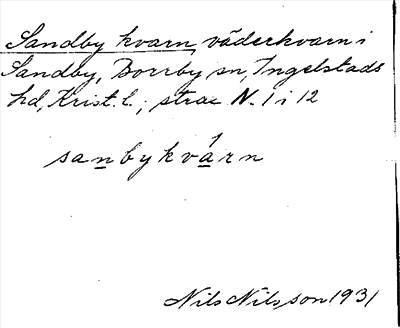 Sandby kvarn, väderkvarn i
Sandby, Borrby sn, Ingelstads
hd, Krist. l.; strax N. 1 i 12
sanbykvárn
Nils Nilsson 1931